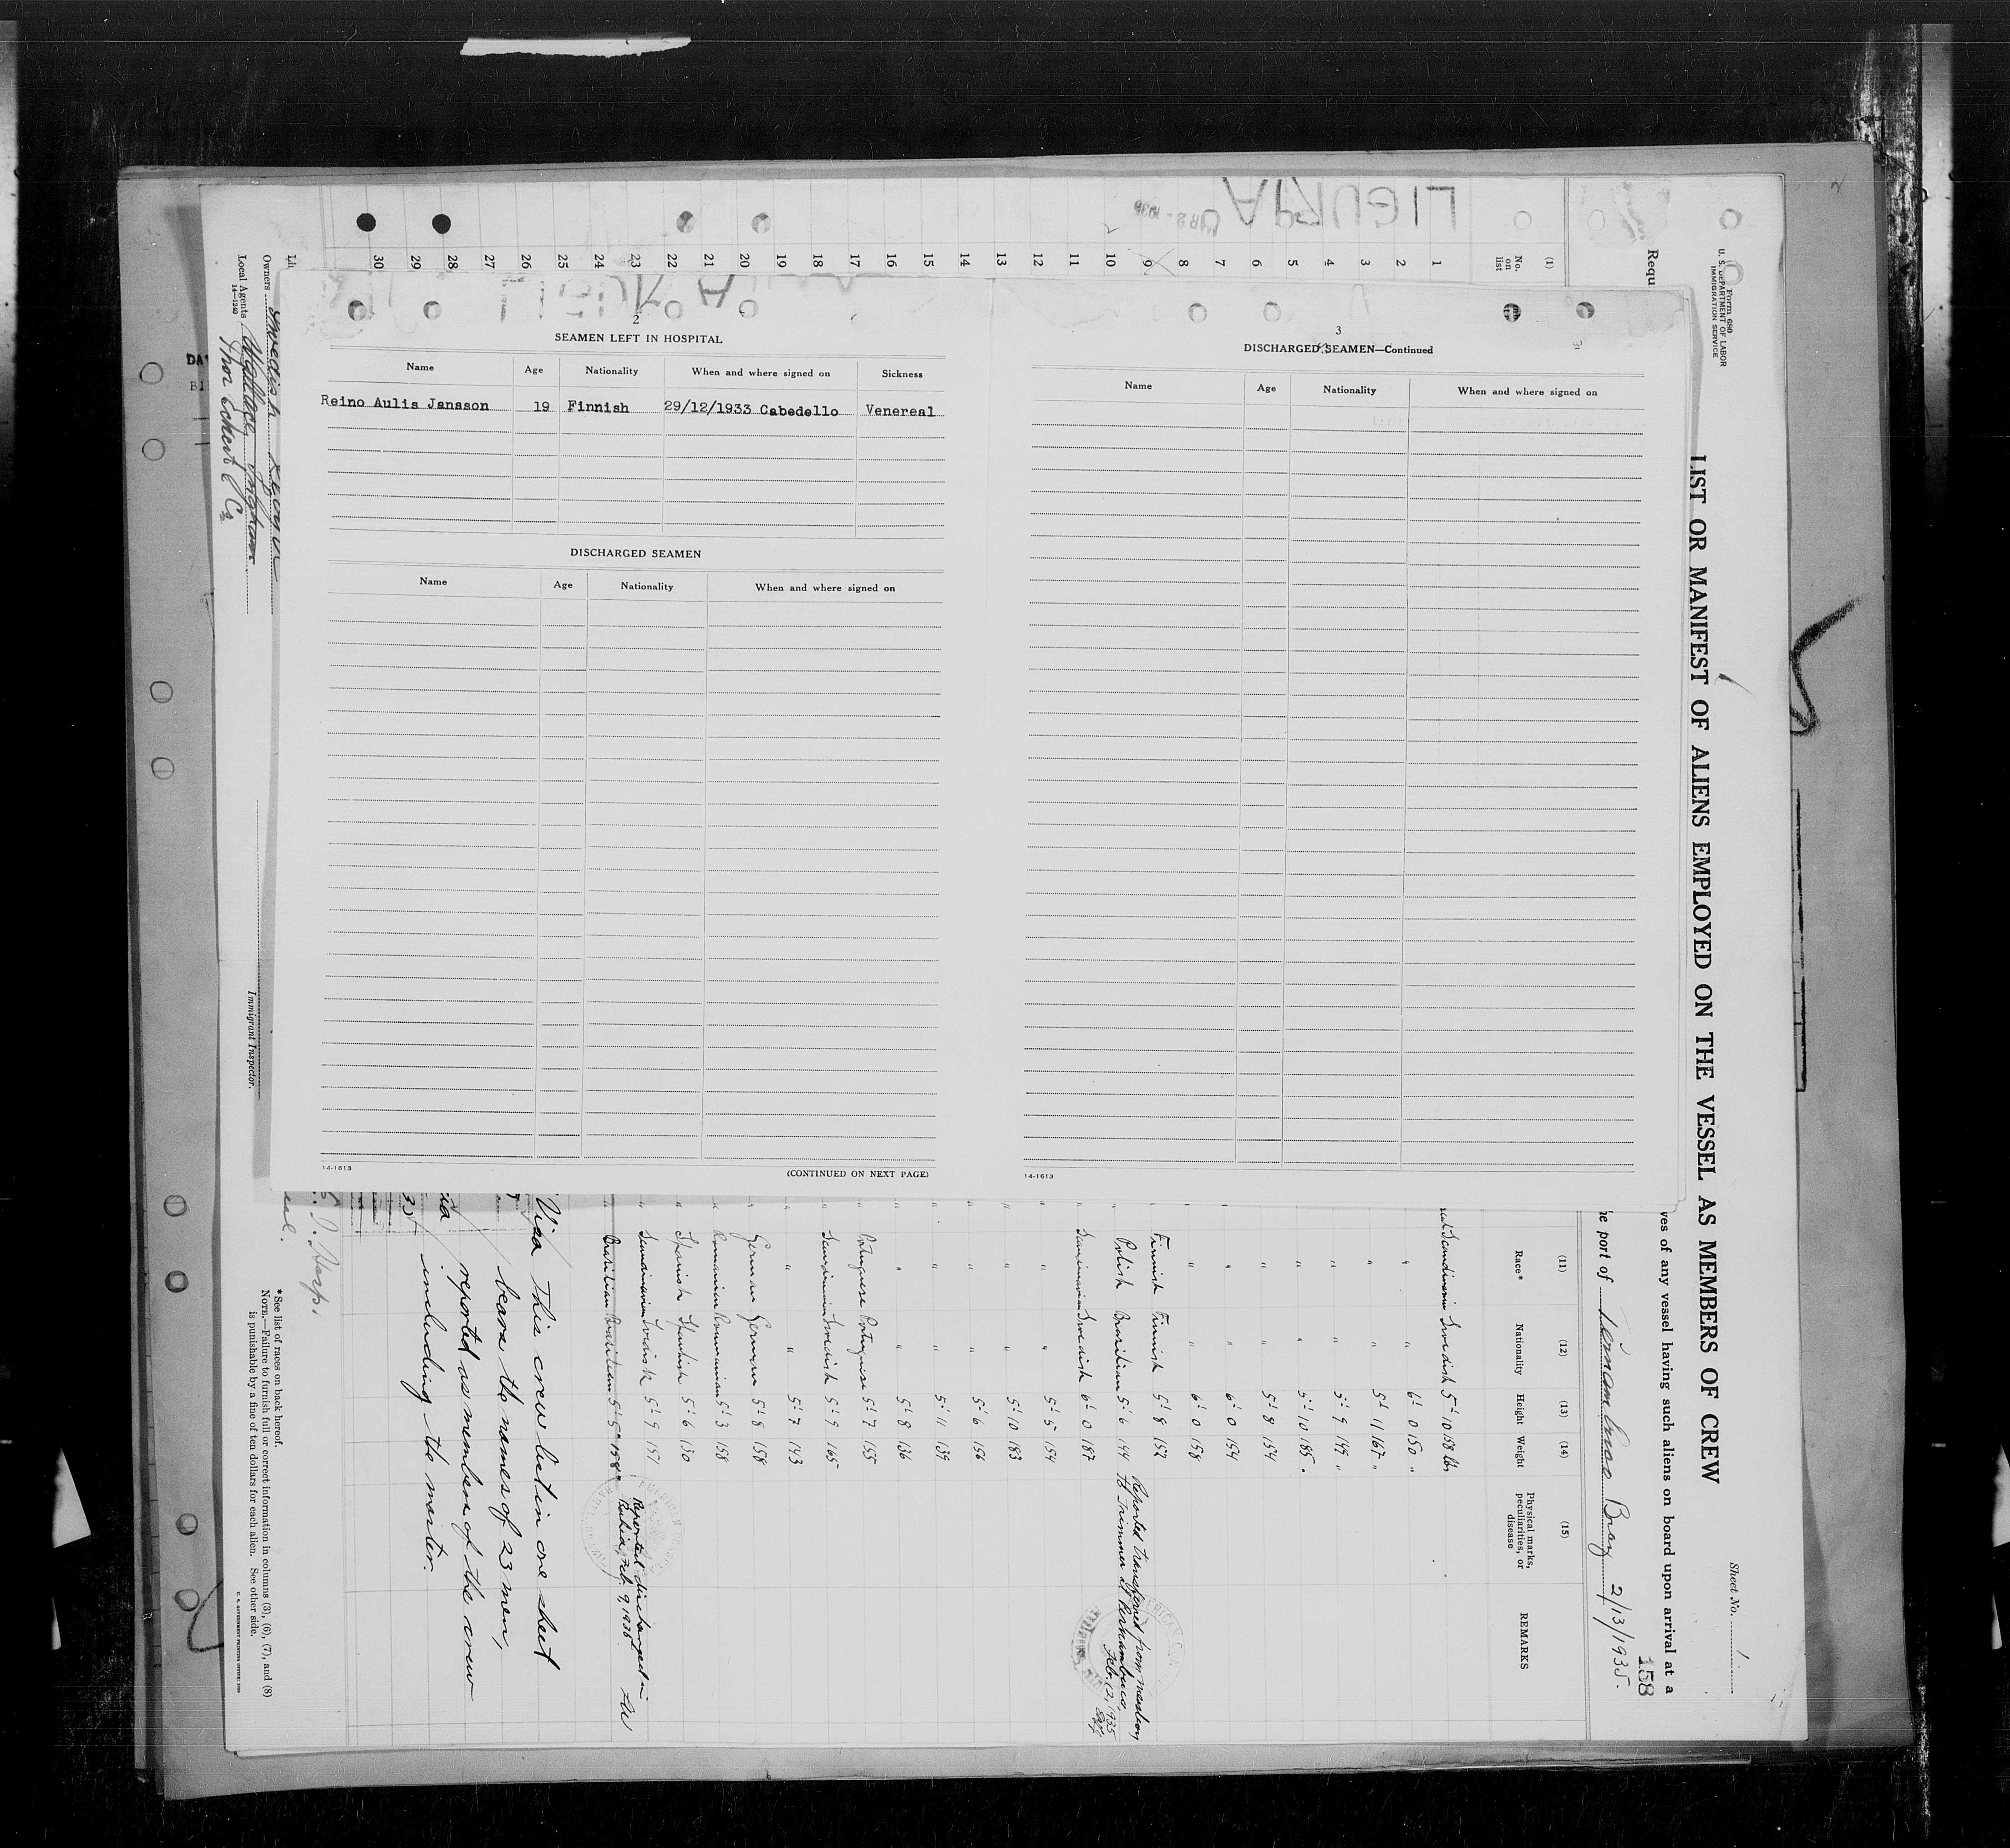 2
SEAMEN LEFT IN HOSPITAL
Name Age Nationality When and where signed on Sickness
Reino Aulis Jansson 19 Finnish 29/12/1933 Cabedello Venereal
DISCHARGED SEAMEN
Name Age Nationality When and where signed on
14-1613 (CONTINUED ON NEXT PAGE)
3
DISCHARGED SEAMEN—Continued
Name Age Nationality When and where signed on
14-1613
Form 680
U. S. DEPARTMENT OF LABOR
IMMIGRATION SERVICE
Sheet No. 1
LIST OR MANIFEST OF ALIENS EMPLOYED ON THE VESSEL AS MEMBERS OF CREW
Requ
ves of any vessel having such aliens on board upon arrival at a
158
he port of Pernambuco Braz 2/13/1935.
LIGURIA
(1) (11) (12) (13) (14) (15)
No. on list Race* Nationality Height Weight Physical marks, peculiarities, or disease REMARKS
1 Scandinavian Swedish 5-10 158 lbs
2 " " 6-0 150 "
3 " " 5-11 167 "
4 " " 5-9 149 "
5 " " 5-10 185 "
6 " " 5-8 154
7 " " 6-0 154
8 " " 6-0 158
9 Finnish Finnish 5-8 152
10 Polish Brasilian 5-6 144 Reported transferred from messboy to trimmer at Pernambuco, Feb. 12, 1935
11 Scandinavian Swedish 6-0 187
12 " " 5-5 154
13 " " 5-10 183
14 " " 5-6 156
15 " " 5-11 139
16 " " 5-8 136
17 Portuguese Portuguese 5-7 155
18 Scandinavian Swedish 5-9 165
19 " " 5-7 143
20 German German 5-8 158
21 Romanian Romanian 5-3 158
22 Spanish Spanish 5-6 130
23 Scandinavian Swedish 5-9 157
24 Brasilian Brasilian 5-5 158 Reported discharged in Bahia, Feb. 9, 1935
25
26
27
28
29
30
Visa This crew list in one sheet
bears the names of 23 men,
reported as members of the crew
including the master.
Owners Swedish
Local Agents Wallace Ingham
Thor Eckert & Co
14-1240
Immigrant Inspector.
*See list of races on back hereof.
NOTE.—Failure to furnish full or correct information in columns (3), (6), (7), and (8)
is punishable by a fine of ten dollars for each alien. See other side.
U. S. GOVERNMENT PRINTING OFFICE